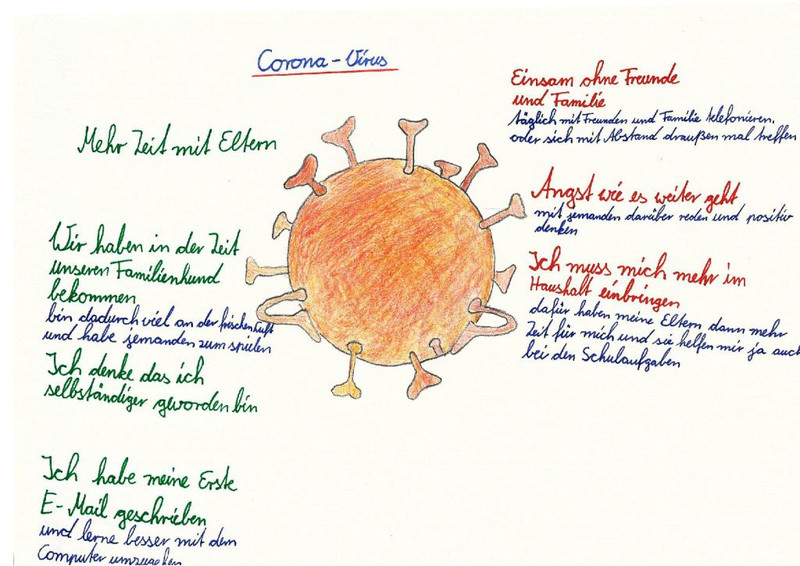 Corona-Virus
Mehr Zeit mit Eltern
Wir haben in der Zeit
unseren Familienhund
bekommen
bin dadurch viel an der frischenluft
und habe jemanden zum spielen
Ich denke das ich
selbständiger geworden bin
Ich habe meine Erste
E-Mail geschrieben
und lerne besser mit dem
Computer umzugehen
Einsam ohne Freunde
und Familie
täglich mit Freunden und Familie telefonieren.
oder sich mit Abstand draußen mal treffen
Angst wie es weiter geht
mit jemanden darüber reden und positiv
denken
Ich muss mich mehr im
Haushalt einbringen
dafür haben meine Eltern dann mehr
Zeit für mich und sie helfen mir ja auch
bei den Schulaufgaben